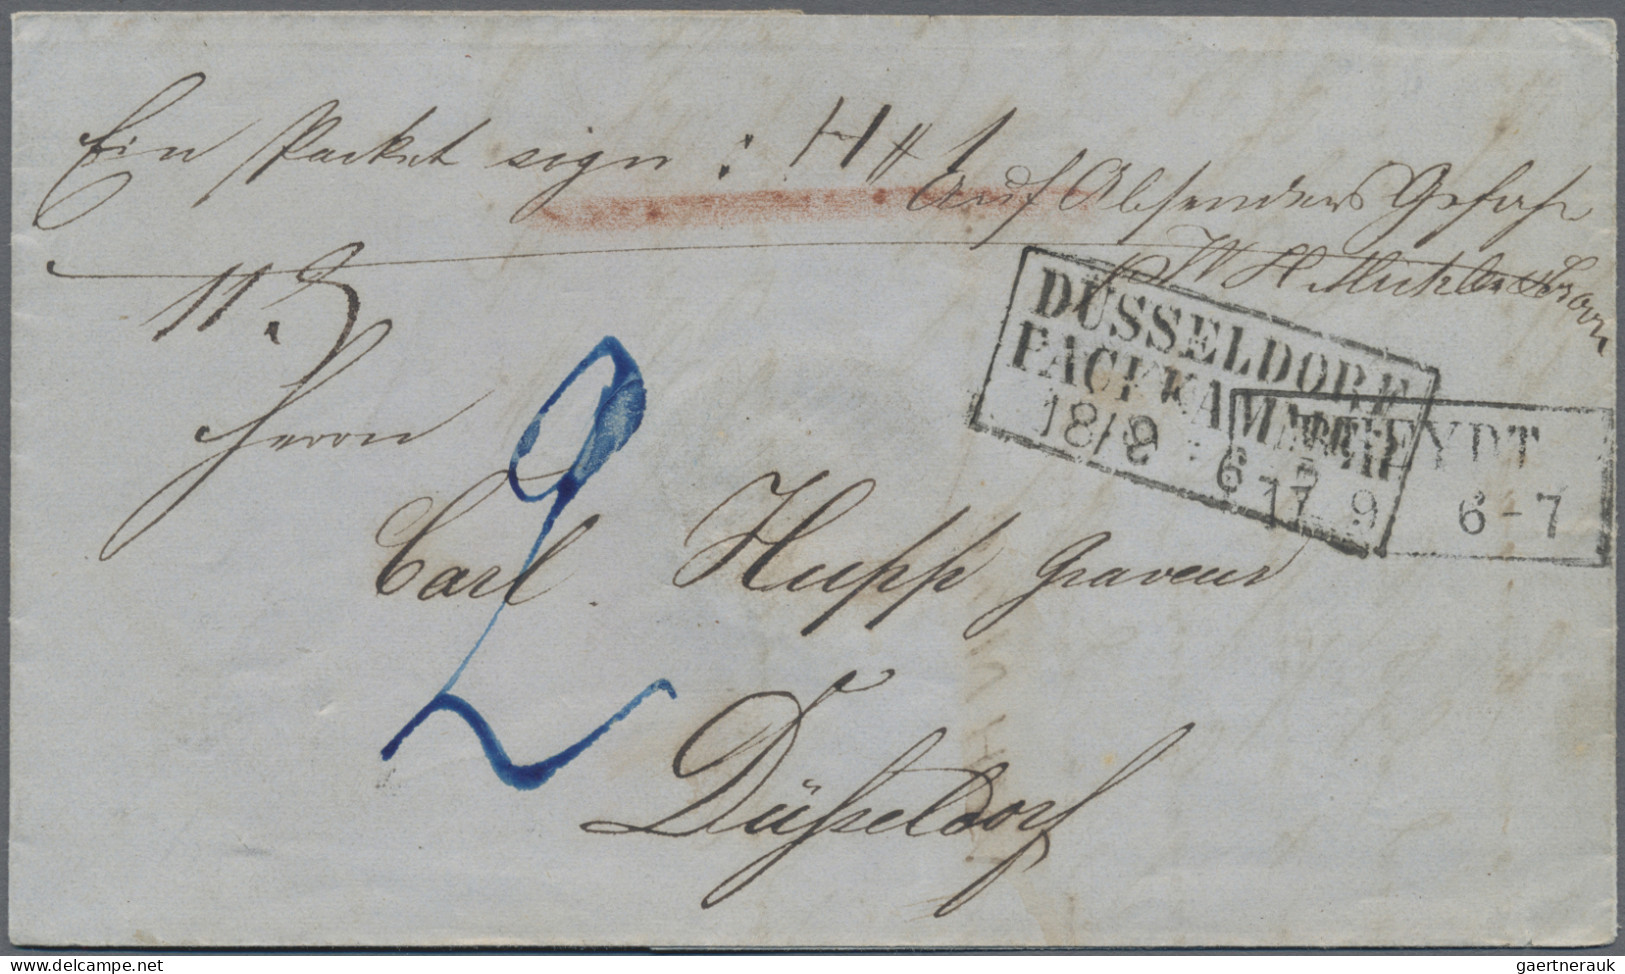 Ein Packet sign : H # 1
Auf Absenders Gefahr
W H
11
Herrn
2
DÜSSELDORF
PACKKAMMER
18/9 6
RHEYDT
17 9 6-7
Carl Hupp Graveur
Düsseldorf
delcampe.net
gaertnerauk